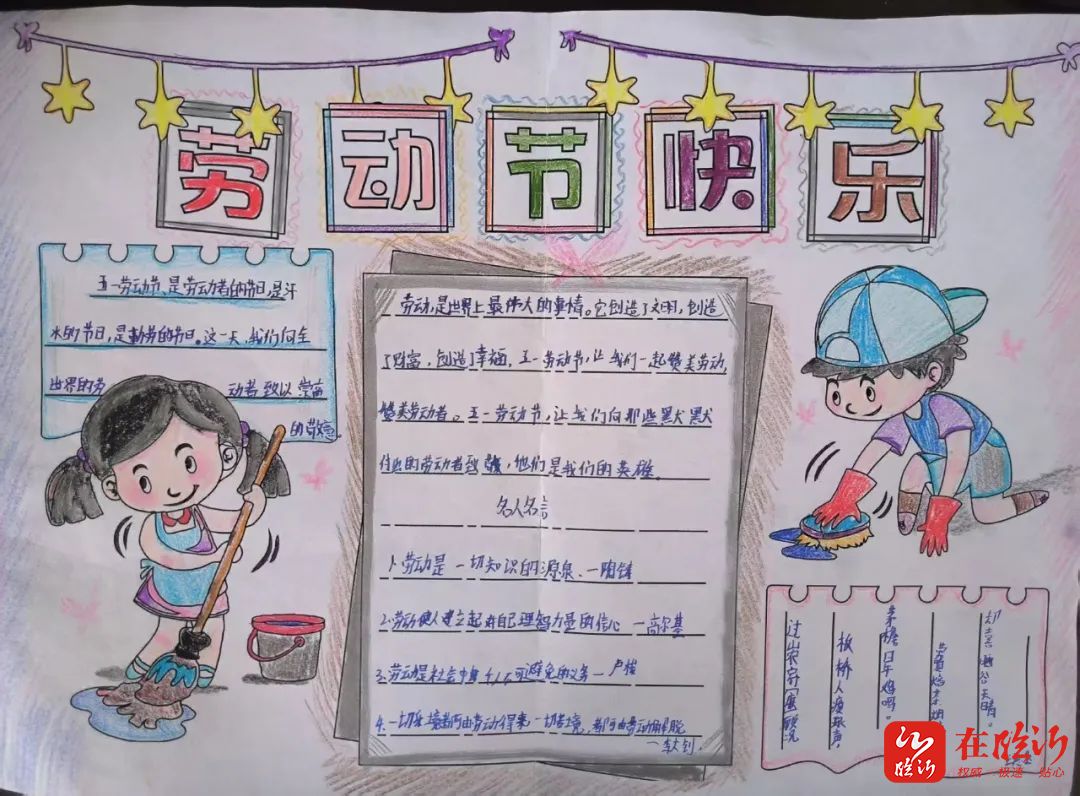 劳动节快乐
五一劳动节,是劳动者的节日,是汗
水的节日,是勤劳的节日。这一天,我们向全
世界的劳动者致以崇高
的敬意。
劳动,是世界上最伟大的事情。它创造了文明,创造
了财富,创造了幸福,五一劳动节,让我们一起赞美劳动,
赞美劳动者。五一劳动节,让我们向那些默默
付出的劳动者致敬,他们是我们的英雄。
名人名言
1.劳动是一切知识的源泉、一陶铸
2.劳动使人建立起对自己理智力量的信心 一高尔基
3.劳动是社会中每个人不可避免的义务一卢梭
4.一切乐境都可由劳动得来一切苦境,都可由劳动解脱
一李大钊.
过山农家
板桥人渡泉声,
茅檐日午鸡鸣。
却 晒谷天晴。
在临沂
权威 极速 贴心
临沂